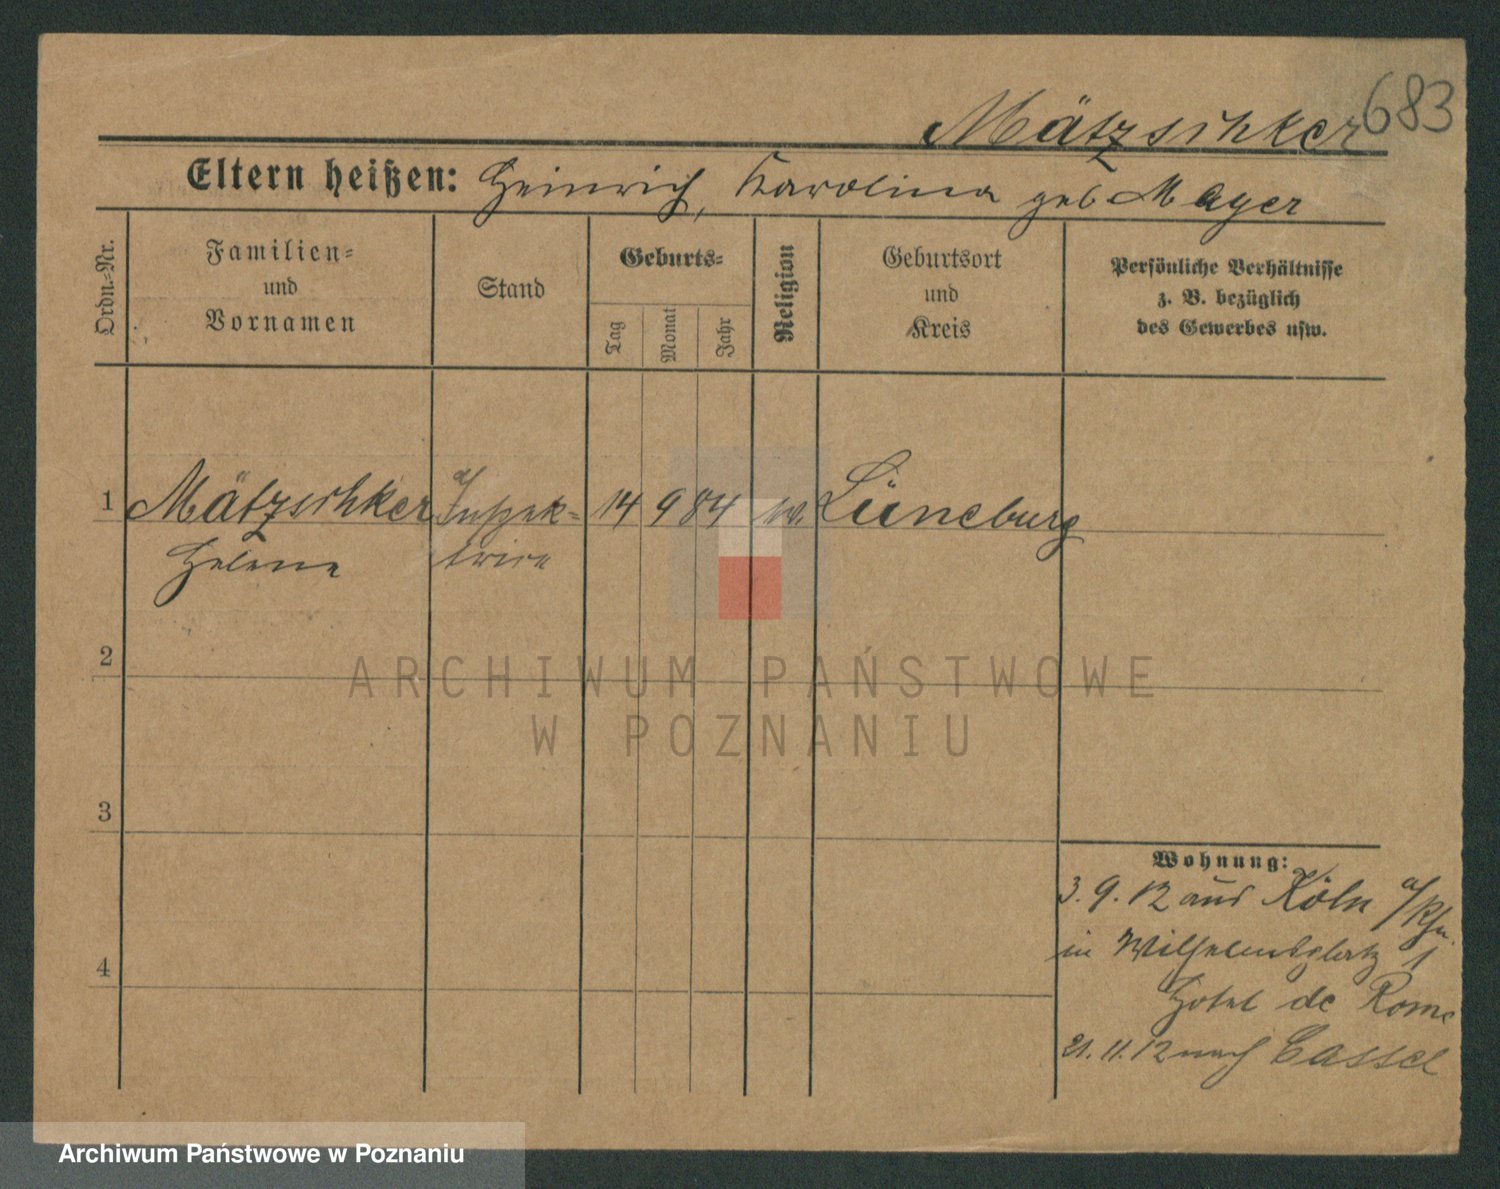 683
Mätzschker
Eltern heißen: Heinrich, Karolina geb Mayer
Ordn.=Nr.
Familien=
und
Vornamen
Stand
Geburts=
Tag
Monat
Jahr
Religion
Geburtsort
und
Kreis
Persönliche Verhältnisse
z. B. bezüglich
des Gewerbes usw.
1 Mätzschker Inspek= 14 9 84 Lüneburg
Helene trice
2
3
4
Wohnung:
3. 9. 12 aus Köln a/Rh.
in Wilhelmsplatz 1
Hotel de Rome
21. 11. 12 nach Cassel
ARCHIWUM PAŃSTWOWE
W POZNANIU
Archiwum Państwowe w Poznaniu